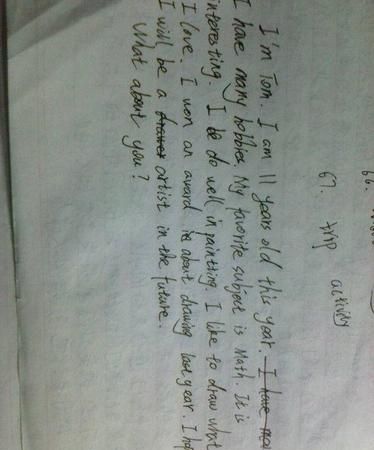 66.
67. trip activity
I'm Tom. I am 11 years old this year.
I have many hobbies. My favorite subject is Math. It is
interesting. I do well in painting. I like to draw what
I love. I won an award about drawing last year. I hop
I will be a artist in the future.
What about you?